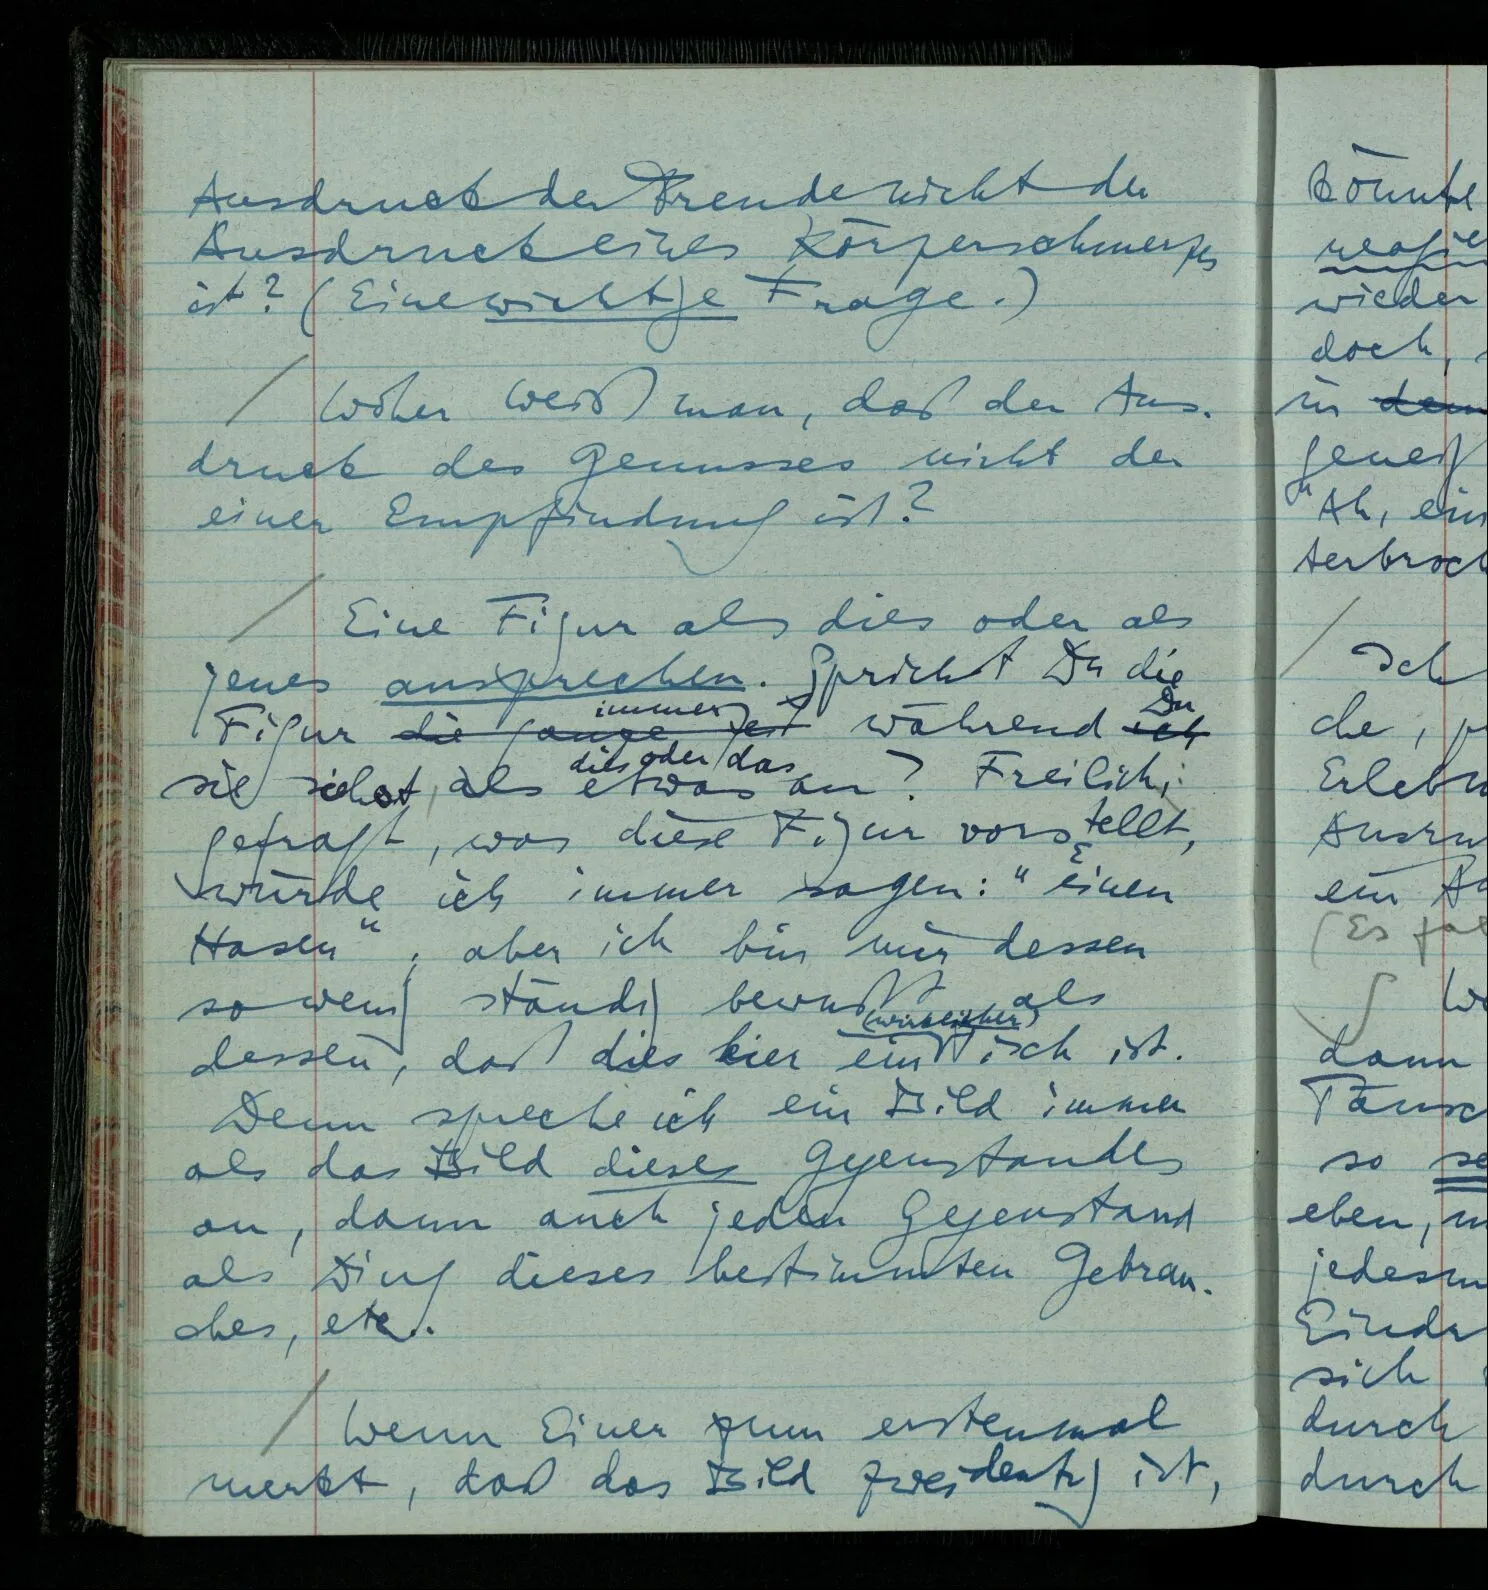 Ausdruck der Freude nicht der
Ausdruck eines Körperschmerzes
ist? (Eine wichtige Frage.)
/ Woher weiß man, daß der Aus-
druck des Genusses nicht der
einer Empfindung ist?
/ Eine Figur als dies oder als
jenes ansprechen. Sprichst Du die
immer Du
Figur die ganze Zeit während ich
dies oder das
sie siehst, als etwas an? Freilich;
gefragt, was diese Figur vorstellt,
würde ich immer sagen: "Einen
Hasen"; aber ich bin mir dessen
sowenig ständig bewußt als
(wirklicher)
dessen, daß dies hier ein Tisch ist.
Denn spreche ich ein Bild immer
als das Bild dieses Gegenstandes
an, dann auch jeden Gegenstand
als Ding dieses bestimmten Gebrau-
ches, etc..
/ Wenn Einer zum erstenmal
merkt, daß das Bild zweideutig ist,
könnte
wieder
doch,
in
"Ah, ein
/ Ich
che,
ein
(Es
dann
so
eben,
sich
durch
durch